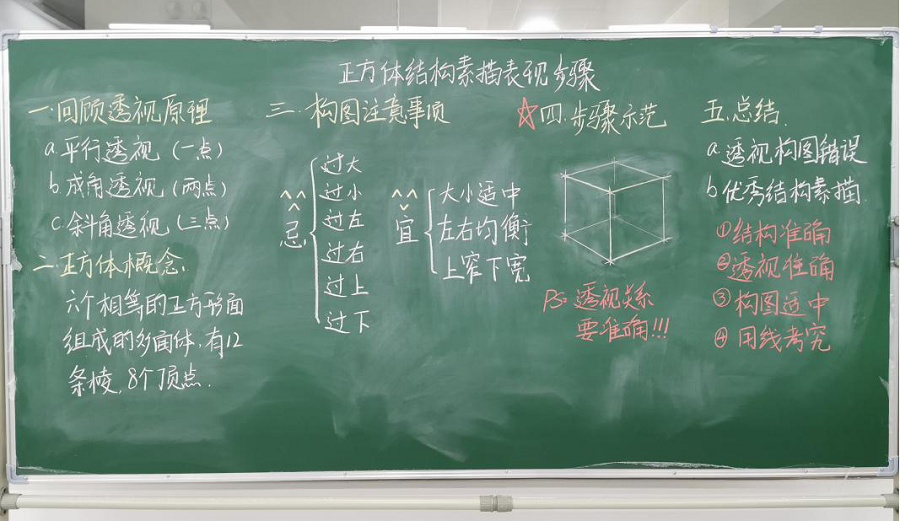 正方体结构素描表现步骤
一.回顾透视原理
a.平行透视(一点)
b.成角透视(两点)
c.余斜角透视(三点)
二.正方体概念:
六个相等的正方形面
组成的多面体,有12
条棱,8个顶点.
三.构图注意事项
忌
过大
过小
过左
过右
过上
过下
宜
大小适中
左右均衡
上窄下宽
☆四.步骤示范
PS:透视关系
要准确!!!
五.总结.
a.透视构图错误
b.优秀结构素描.
①结构准确
②透视准确
③构图适中
④用线考究